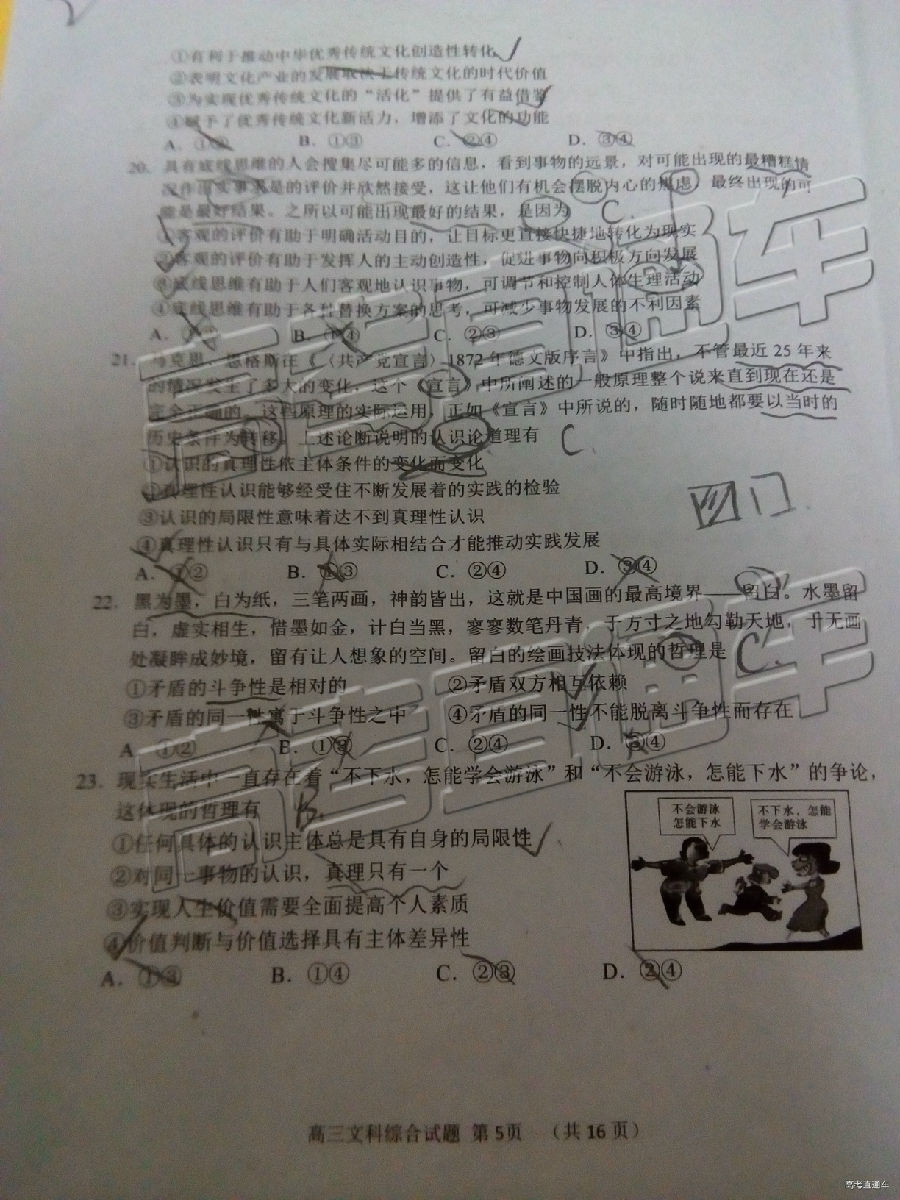 ①有利于推动中华优秀传统文化创造性转化
②表明文化产业的发展取决于传统文化的时代价值
③为实现优秀传统文化的“活化”提供了有益借鉴
④赋予了优秀传统文化新活力，增添了文化的功能
A．①② B．①③ C．②④ D．③④
20．具有底线思维的人会搜集尽可能多的信息，看到事物的远景，对可能出现的最糟糕情
况作出实事求是的评价并欣然接受，这让他们有机会摆脱内心的焦虑，最终出现的可
能是最好结果。之所以可能出现最好的结果，是因为 C.
①客观的评价有助于明确活动目的，让目标更直接快捷地转化为现实
②客观的评价有助于发挥人的主动创造性，促进事物向积极方向发展
③底线思维有助于人们客观地认识事物，可调节和控制人体生理活动
④底线思维有助于各种替换方案的思考，可减少事物发展的不利因素
A． B．①④ C．②③ D．③④
21．马克思、恩格斯在《〈共产党宣言〉1872年德文版序言》中指出，不管最近25年来
的情况发生了多大的变化，这个《宣言》中所阐述的一般原理整个说来直到现在还是
完全正确的。这些原理的实际运用，正如《宣言》中所说的，随时随地都要以当时的
历史条件为转移。上述论断说明的认识论道理有 C
①认识的真理性依主体条件的变化而变化
②真理性认识能够经受住不断发展着的实践的检验
③认识的局限性意味着达不到真理性认识
④真理性认识只有与具体实际相结合才能推动实践发展
A．①② B．①③ C．②④ D．③④
22．黑为墨，白为纸，三笔两画，神韵皆出，这就是中国画的最高境界——留白。水墨留
白，虚实相生，惜墨如金，计白当黑，寥寥数笔丹青，于方寸之地勾勒天地，于无画
处凝眸成妙境，留有让人想象的空间。留白的绘画技法体现的哲理是 C.
①矛盾的斗争性是相对的 ②矛盾双方相互依赖
③矛盾的同一性寓于斗争性之中 ④矛盾的同一性不能脱离斗争性而存在
A．①② B．①③ C．②④ D．③④
23．现实生活中一直存在着“不下水，怎能学会游泳”和“不会游泳，怎能下水”的争论，
这体现的哲理有 B.
①任何具体的认识主体总是具有自身的局限性
②对同一事物的认识，真理只有一个
③实现人生价值需要全面提高个人素质
④价值判断与价值选择具有主体差异性
A．①③ B．①④ C．②③ D．②④
不会游泳
怎能下水
不下水，怎能
学会游泳
高三文科综合试题 第5页 （共16页）
高考直通车
高考直通车
高考直通车